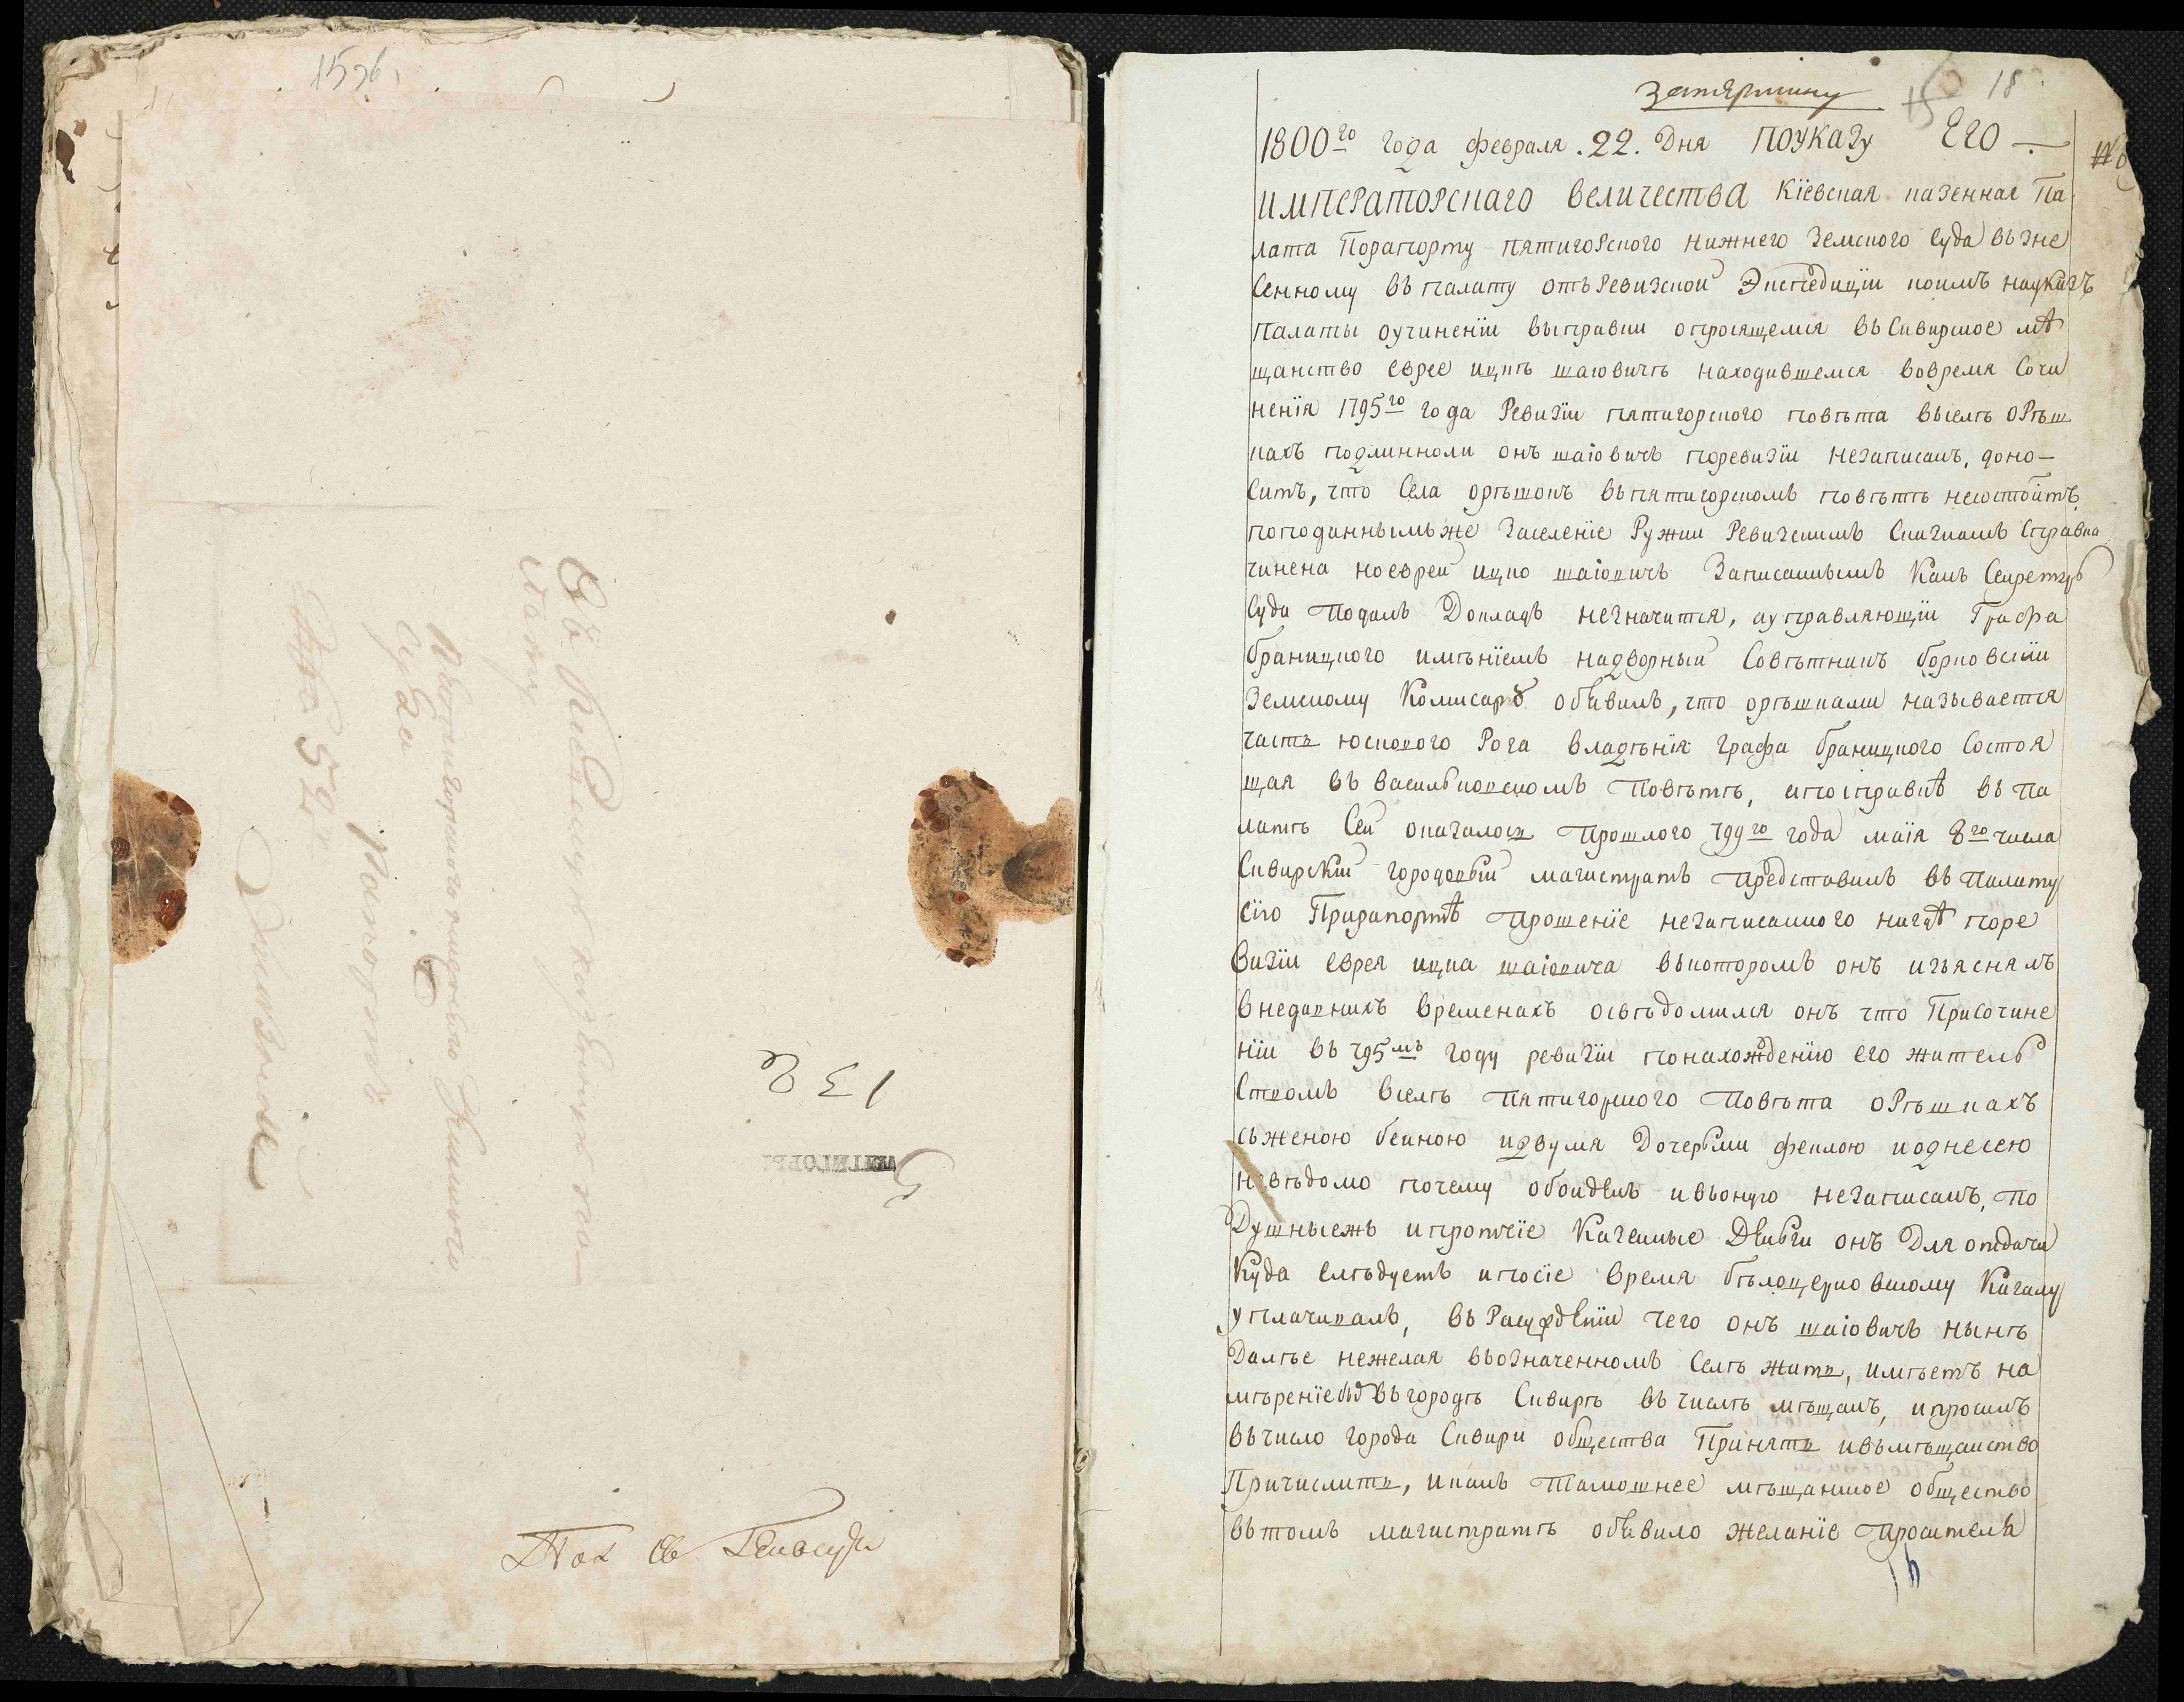 15 об.
Въ Киевскую казенную па
лату
Пятигорского нижнего Земского
Суда
Рапортъ
132
Пятигоры
18
1800го года февраля .22. Дня ПОУКАЗУ ЕГО
ИМПЕРАТОРСКАГО Величества Кїевская казенная Па
лата Порапорту пятигорского нижнего Земского Суда взне
сенному въ палату отъ Ревизской Экспедицїи коимъ науказъ
Палаты оучиненїи выправки опросящемся въ Сивирское мѣ
щанство еврее ицкѣ шаїовичѣ находившемся вовремя Сочи
ненїя 1795го года Ревизїи пятигорского повѣта вселѣ орѣш
кахъ подлинноли онъ шаїовичъ поревизїи незаписанъ, доно—
ситъ, что Села орѣшокъ впятигорскомъ повѣтѣ несостоитъ,
поподаннымъже Заселенїе Ружки Ревизскимъ Сказкамъ Справка
чинена ноеврей ицко шаїовичъ Записаннымъ Какъ Секретарь
Суда Подалъ Докладъ незначится, ауправляющїй Графа
браницкого имѣнїемъ надворный Совѣтникъ борковскїй
Земскому Комисару обявилъ, что орѣшками называется
часть юскового Рога владѣнїя графа браницкого Состоя
щая въ васильковскомъ Повѣтѣ, апосправкѣ въ Па
латѣ Сей оказалось Прошлого 799го года маїя 8го числа
Сивирскїй городовый магистратъ Представилъ въ Палату
сїю Прирапортѣ Прошенїе незаписанного нигдѣ поре
визїи еврея ицка шаїовича вкоторомъ онъ изъяснялъ
внедавнихъ временахъ освѣдомился онъ что Присочине
нїи въ 795мъ году ревизїи понахожденїю его житель
ствомъ вселѣ Пятигорского Повѣта орѣшкахъ
сженою бейною идвумя Дочерьми фейлою иоднесею
невѣдомо почему обойденъ ивьоную незаписанъ, По
Душныежъ ипротчїе Казенные Деньги онъ Для отдачи
Куда слѣдуетъ ипосїе время бѣлоцерковскому Кагалу
уплачивалъ, въ Разсужденїи чего онъ шаїовичъ нынѣ
Далѣе нежелая вьозначенномъ Селѣ жить, имѣетъ на
мѣренїе въгородѣ Сивирѣ въ числѣ мѣщанъ, ипросилъ
въчисло города Сивири общества Принять ивъмѣщанство
Причислить, икакъ Тамошнее мѣщанское общество
вътомъ магистратѣ обявило желанїе Просителя